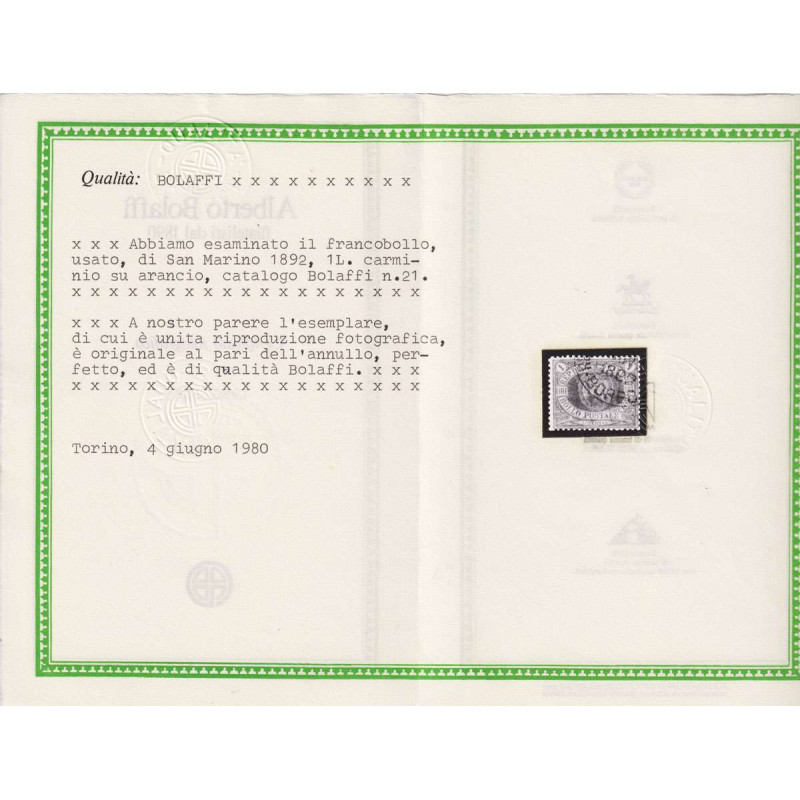 Qualità: BOLAFFI x x x x x x x x x x
x x x Abbiamo esaminato il francobollo,
usato, di San Marino 1892, 1L. carmi-
nio su arancio, catalogo Bolaffi n.21.
x x x x x x x x x x x x x x x x x x x
x x x A nostro parere l'esemplare,
di cui è unita riproduzione fotografica,
è originale al pari dell'annullo, per-
fetto, ed è di qualità Bolaffi. x x x
x x x x x x x x x x x x x x x x x x x
Torino, 4 giugno 1980
Alberto Bolaffi
filatelisti dal 1890
BOLLO POSTALE